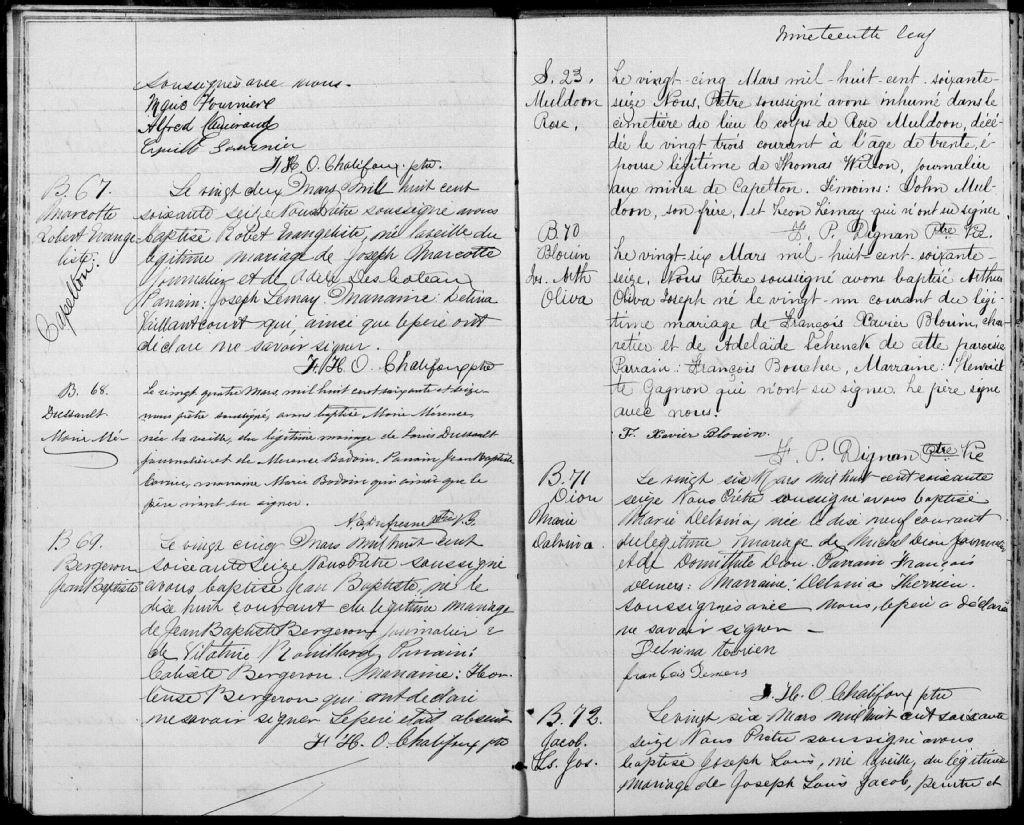 soussignés avec nous.
Marie Fournier
Alfred
Fournier
F. H. O. Chalifoux ptre
B. 67.
Marcotte
Robert Evange
liste.
Capelton.
Le vingt deux Mars Mill huit cent
soixante seize Nous Prêtre soussigné avons
baptisé Robet Evangeliste, né la veille du
légitime mariage de Joseph Marcotte
journalier et de Adele Descoteau
Parrain: Joseph Lemay. Marraine: Delina
Vaillantcourt qui, ainsi que le père ont
déclaré ne savoir signer.
F. H. O. Chalifoux ptre
B. 68.
Dussault
Marie Mé-
Le vingt quatre Mars, mil huit cent soixante et seize
nous prêtre soussigné, avons baptisé Marie Merence
née la veille, du légitime mariage de Louis Dussault
journalier et de Merence Bodoin. Parrain Jean Baptiste
marraine Marie Bodoin qui ainsi que le
père n'ont su signer.
Dufresne ptre V.
B 69.
Bergeron
Jean Baptiste
Le vingt cinq Mars Mil huit cent
soixante Seize Nous Prêtre soussigné
avons baptisé Jean Baptiste, né le
dix huit courant du legitime mariage
de Jean Baptiste Bergeron journalier &
de Vitaline Rouillard Parrain:
Calixte Bergeron. Marraine: Hor-
tense Bergeron qui ont déclaré
ne savoir signer Le père etait absent
F. H. O. Chalifoux ptre
Nineteenth leaf
S. 23.
Muldoon
Rose.
Le vingt-cinq Mars mil-huit-cent-soixante-
seize Nous, Prêtre soussigné avons inhumé dans le
cimetière du lieu le corps de Rose Muldoon, décé-
dée le vingt trois courant à l'âge de trente, é-
pouse légitime de Thomas Wilson, journalier
aux mines de Capelton. Témoins: John Mul-
doon, son frère, et Leon Lemay qui n'ont su signer
F. P. Dignan Ptre Vic
B 70
Blouin
Jos. Arth
Oliva
Le vingt-six Mars mil-huit-cent-soixante-
seize, Nous Prêtre soussigné avons baptisé Arthur
Oliva Joseph né le vingt-un courant du légi-
time mariage de François Xavier Blouin, char
retier et de Adelaïde Schenck de cette paroisse
Parrain: François Boucher, Marraine: Henriet
te Gagnon qui n'ont su signer. Le père, signe
avec nous.
F. Xavier Blouin.
F. P. Dignan Ptre Vic
B. 71
Dion
Marie
Dalvina
Le vingt six Mars mil huit cent soixante
seize Nous Prêtre soussigné avons baptisé
Marie Delvina, née le dix neuf courant
du legitime mariage de Michel Dion journalier
et de Domithilde Dion. Parrain François
Demers: Marraine: Delvinia Herrien.
soussignés avec nous, le père a déclaré
ne savoir signer —
Delvina terrien
françois Demers
F. H. O. Chalifoux ptre
B. 72.
Jacob.
Ls. Jos.
Le vingt six Mars mil huit cent soixante
seize Nous Pretre soussigné avons
baptisé Joseph Louis, né la veille, du légitime
mariage de Joseph Louis Jacob, peintre et